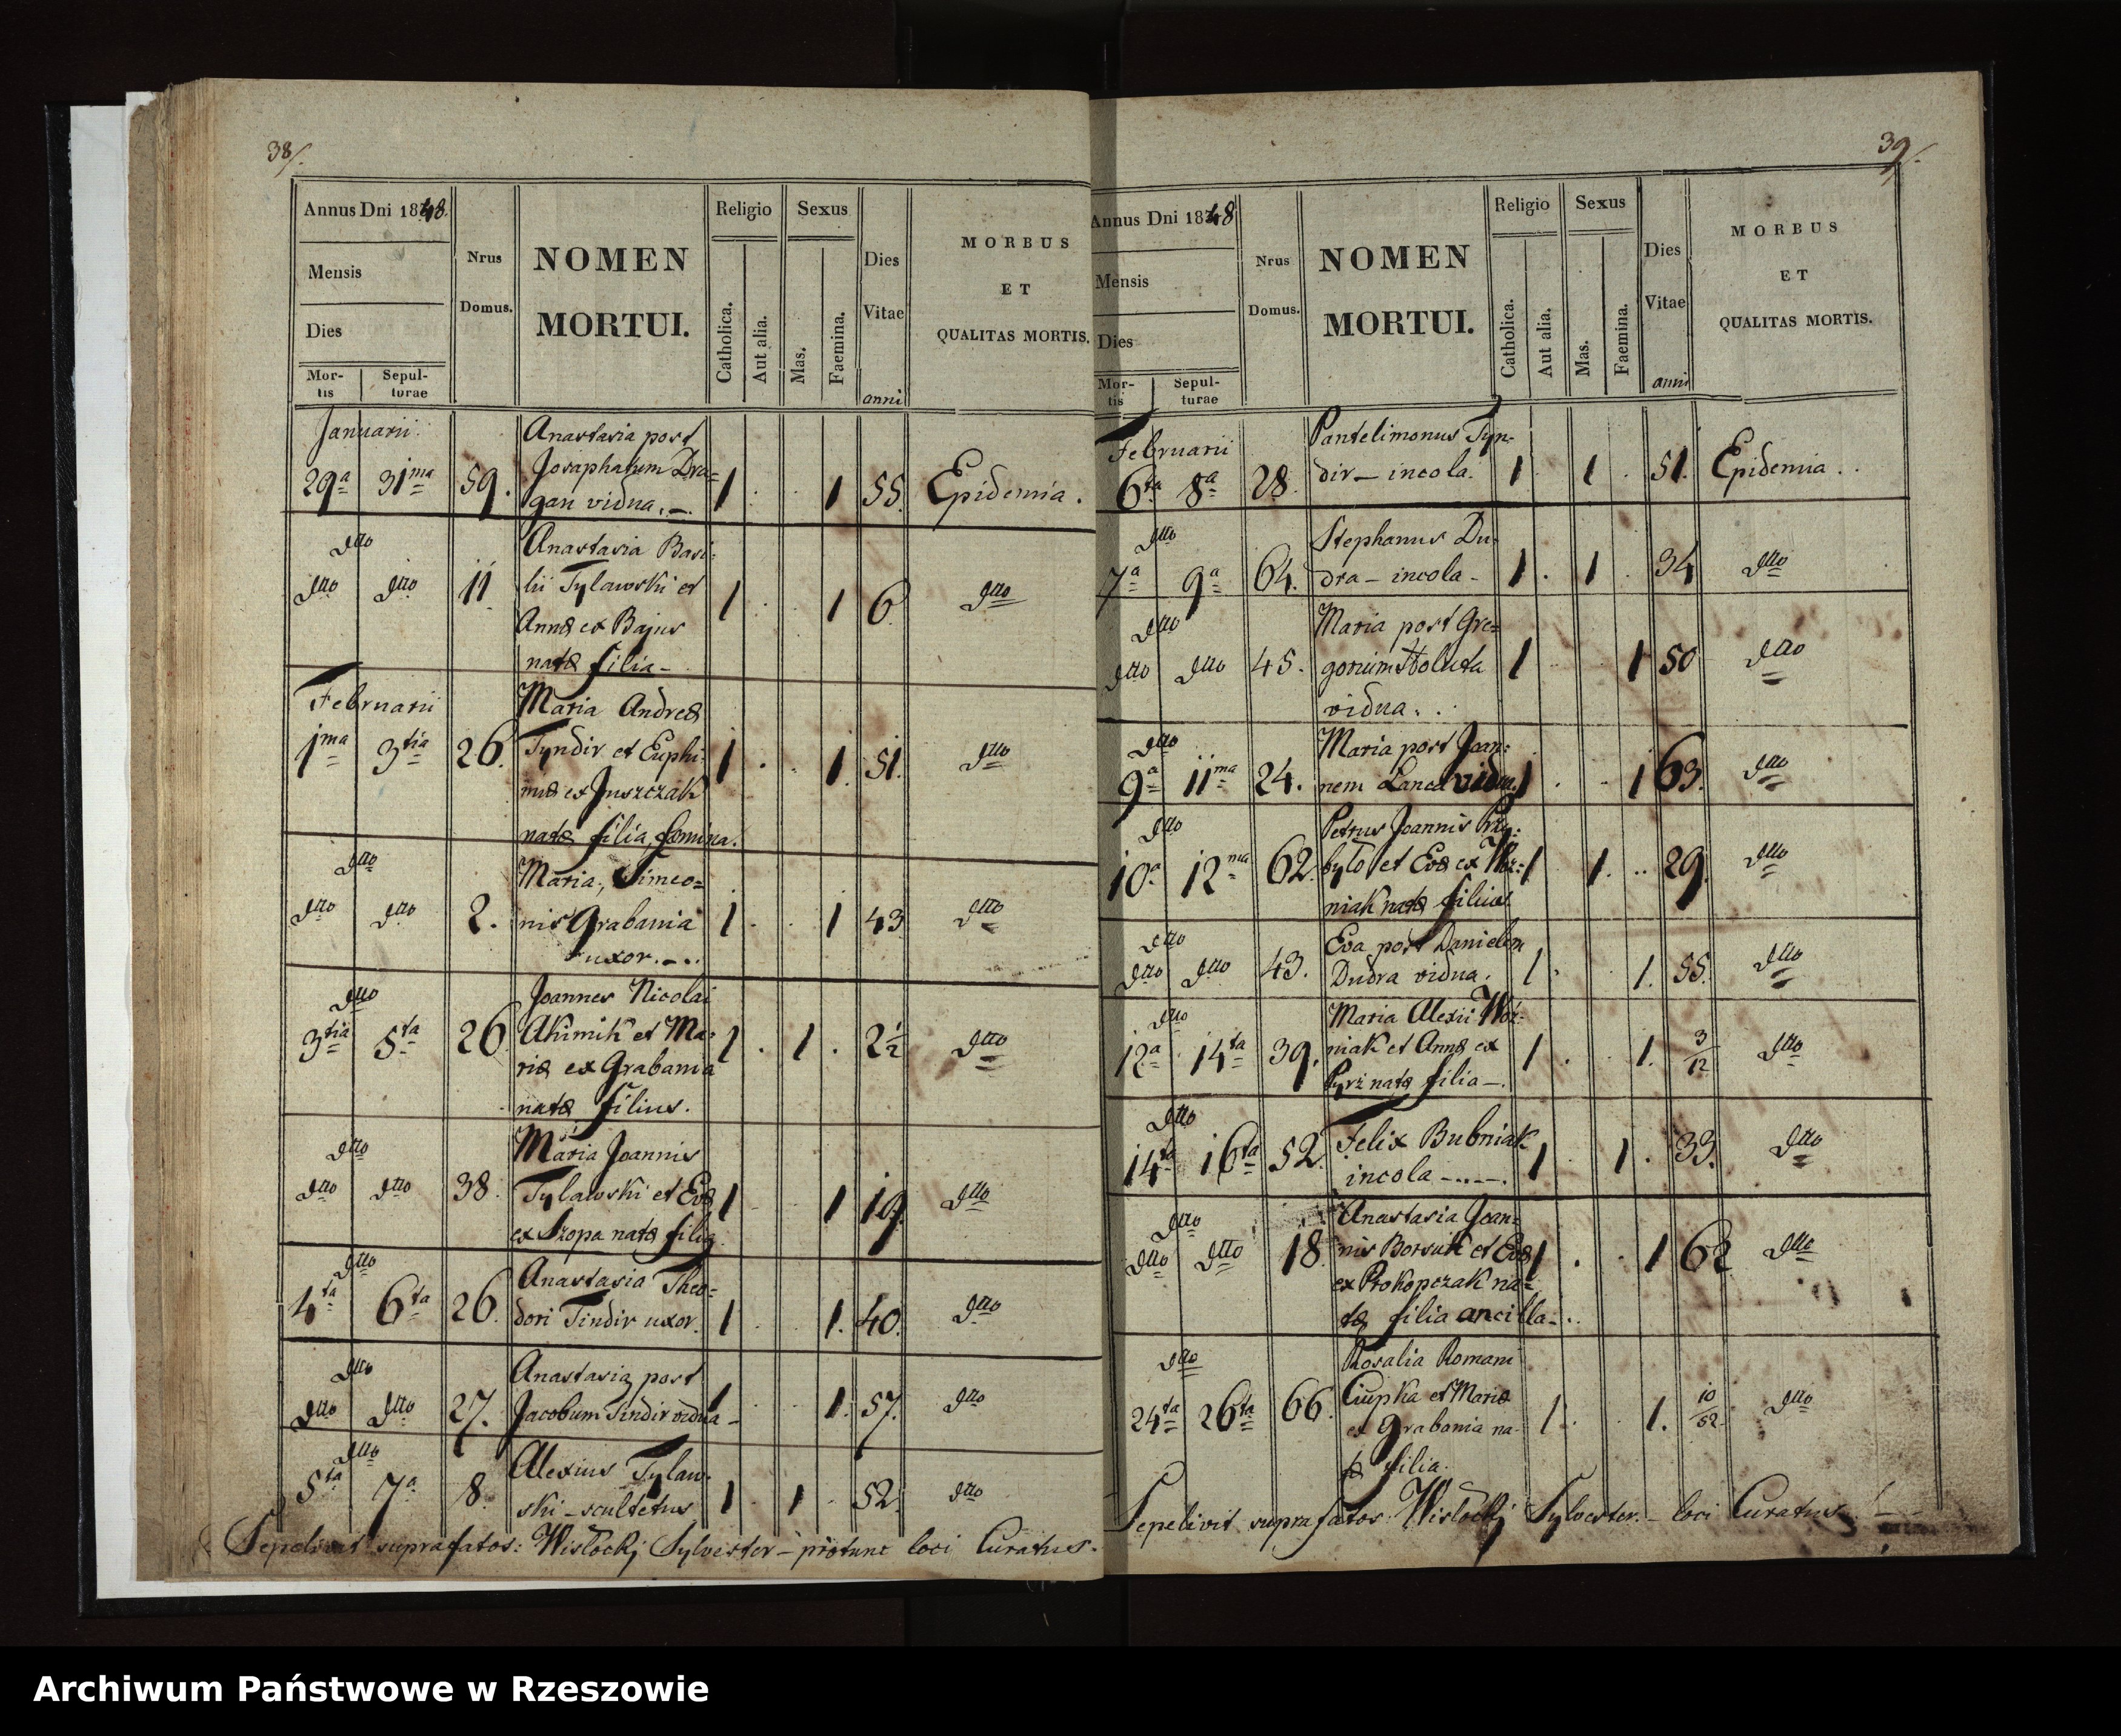 38/.
Annus Dni 1848.
Mensis
Dies
Mor-
tis
Sepul-
turae
Nrus
Domus.
NOMEN
MORTUI.
Religio
Catholica.
Aut alia.
Sexus
Mas.
Faemina.
Dies
Vitae
anni
MORBUS
ET
QUALITAS MORTIS.
Januarii
29a 31ma 59. Anastasia post
Josaphatum Dra=
gan vidua. 1 1 55. Epidemia.
dtto
dtto dtto 11 Anastasia Basi-
lii Tylawski et
Annæ ex Bajus
natæ filia 1 1 6 dtto
Februarii
1ma 3tia 26. Maria Andreæ
Tyndir et Euphi-
miæ ex Juszczak
natæ filia, fæmina. 1 1. 51. dtto
dtto
dtto dtto 2. Maria, Simeo=
nis Grabania
uxor. 1 1 43 dtto
dtto
3tia 5ta 26 Joannes Nicolai
Akimik et Ma-
riæ ex Grabania
natæ filius. 1 1 2½ dtto
dtto
dtto dtto 38. Maria Joannis
Tylawski et Evæ
ex Szopa natæ filia 1 1 19. dtto
dtto
4ta 6ta 26. Anastasia Theo=
dori Tindir uxor. 1 1. 40. dtto
dtto
dtto dtto 27. Anastasia post
Jacobum Tindir vidua 1 1. 57. dtto
dtto
5ta 7a 8. Alexius Tylaw-
ski - scultetus 1 1 52. dtto
Sepelivit suprafatos: Wisłockj Sylvester - protunc loci Curatus.
39/.
Annus Dni 1848
Mensis
Dies
Mor-
tis
Sepul-
turae
Nrus
Domus.
NOMEN
MORTUI.
Religio
Catholica.
Aut alia.
Sexus
Mas.
Faemina.
Dies
Vitae
anni
MORBUS
ET
QUALITAS MORTIS.
Februarii
6ta 8a 28. Pantelimonus Tyn-
dir - incola. 1 1 51. Epidemia.
dtto
7a 9a 64. Stephanus Du-
dra - incola 1 1 34 dtto
dtto
dtto dtto 45. Maria post Gre=
gorium
vidua. 1 1 50 dtto
dtto
9a 11ma 24. Maria post Joan-
nem vidua 1 1 63. dtto
dtto
10a 12ma 62. Petrus Joannis Przy-
było et Evæ ex Woź-
niak natæ filius 1 1. 29. dtto
dtto
dtto dtto 43. Eva post Danielem
Dudra vidua. 1 1. 55. dtto
dtto
12a 14ta 39. Maria Alexii Woź-
niak et Annæ ex
Pyrz natæ filia 1 1. 3/12 dtto
dtto
14ta 16ta 52. Felix Bubniak
incola 1 1. 33. dtto
dtto
dtto dtto 18 Anastasia Joan-
nis Borsuk et Evæ
ex Prokopczak na-
tæ filia ancilla 1 1 62 dtto
dtto
24ta 26ta 66. Rosalia Romani
Ciupka et Mariæ
ex Grabania na-
tæ filia. 1 1. 10/52. dtto
Sepelivit suprafatos: Wisłockj Sylvester. - loci Curatus
Archiwum Państwowe w Rzeszowie